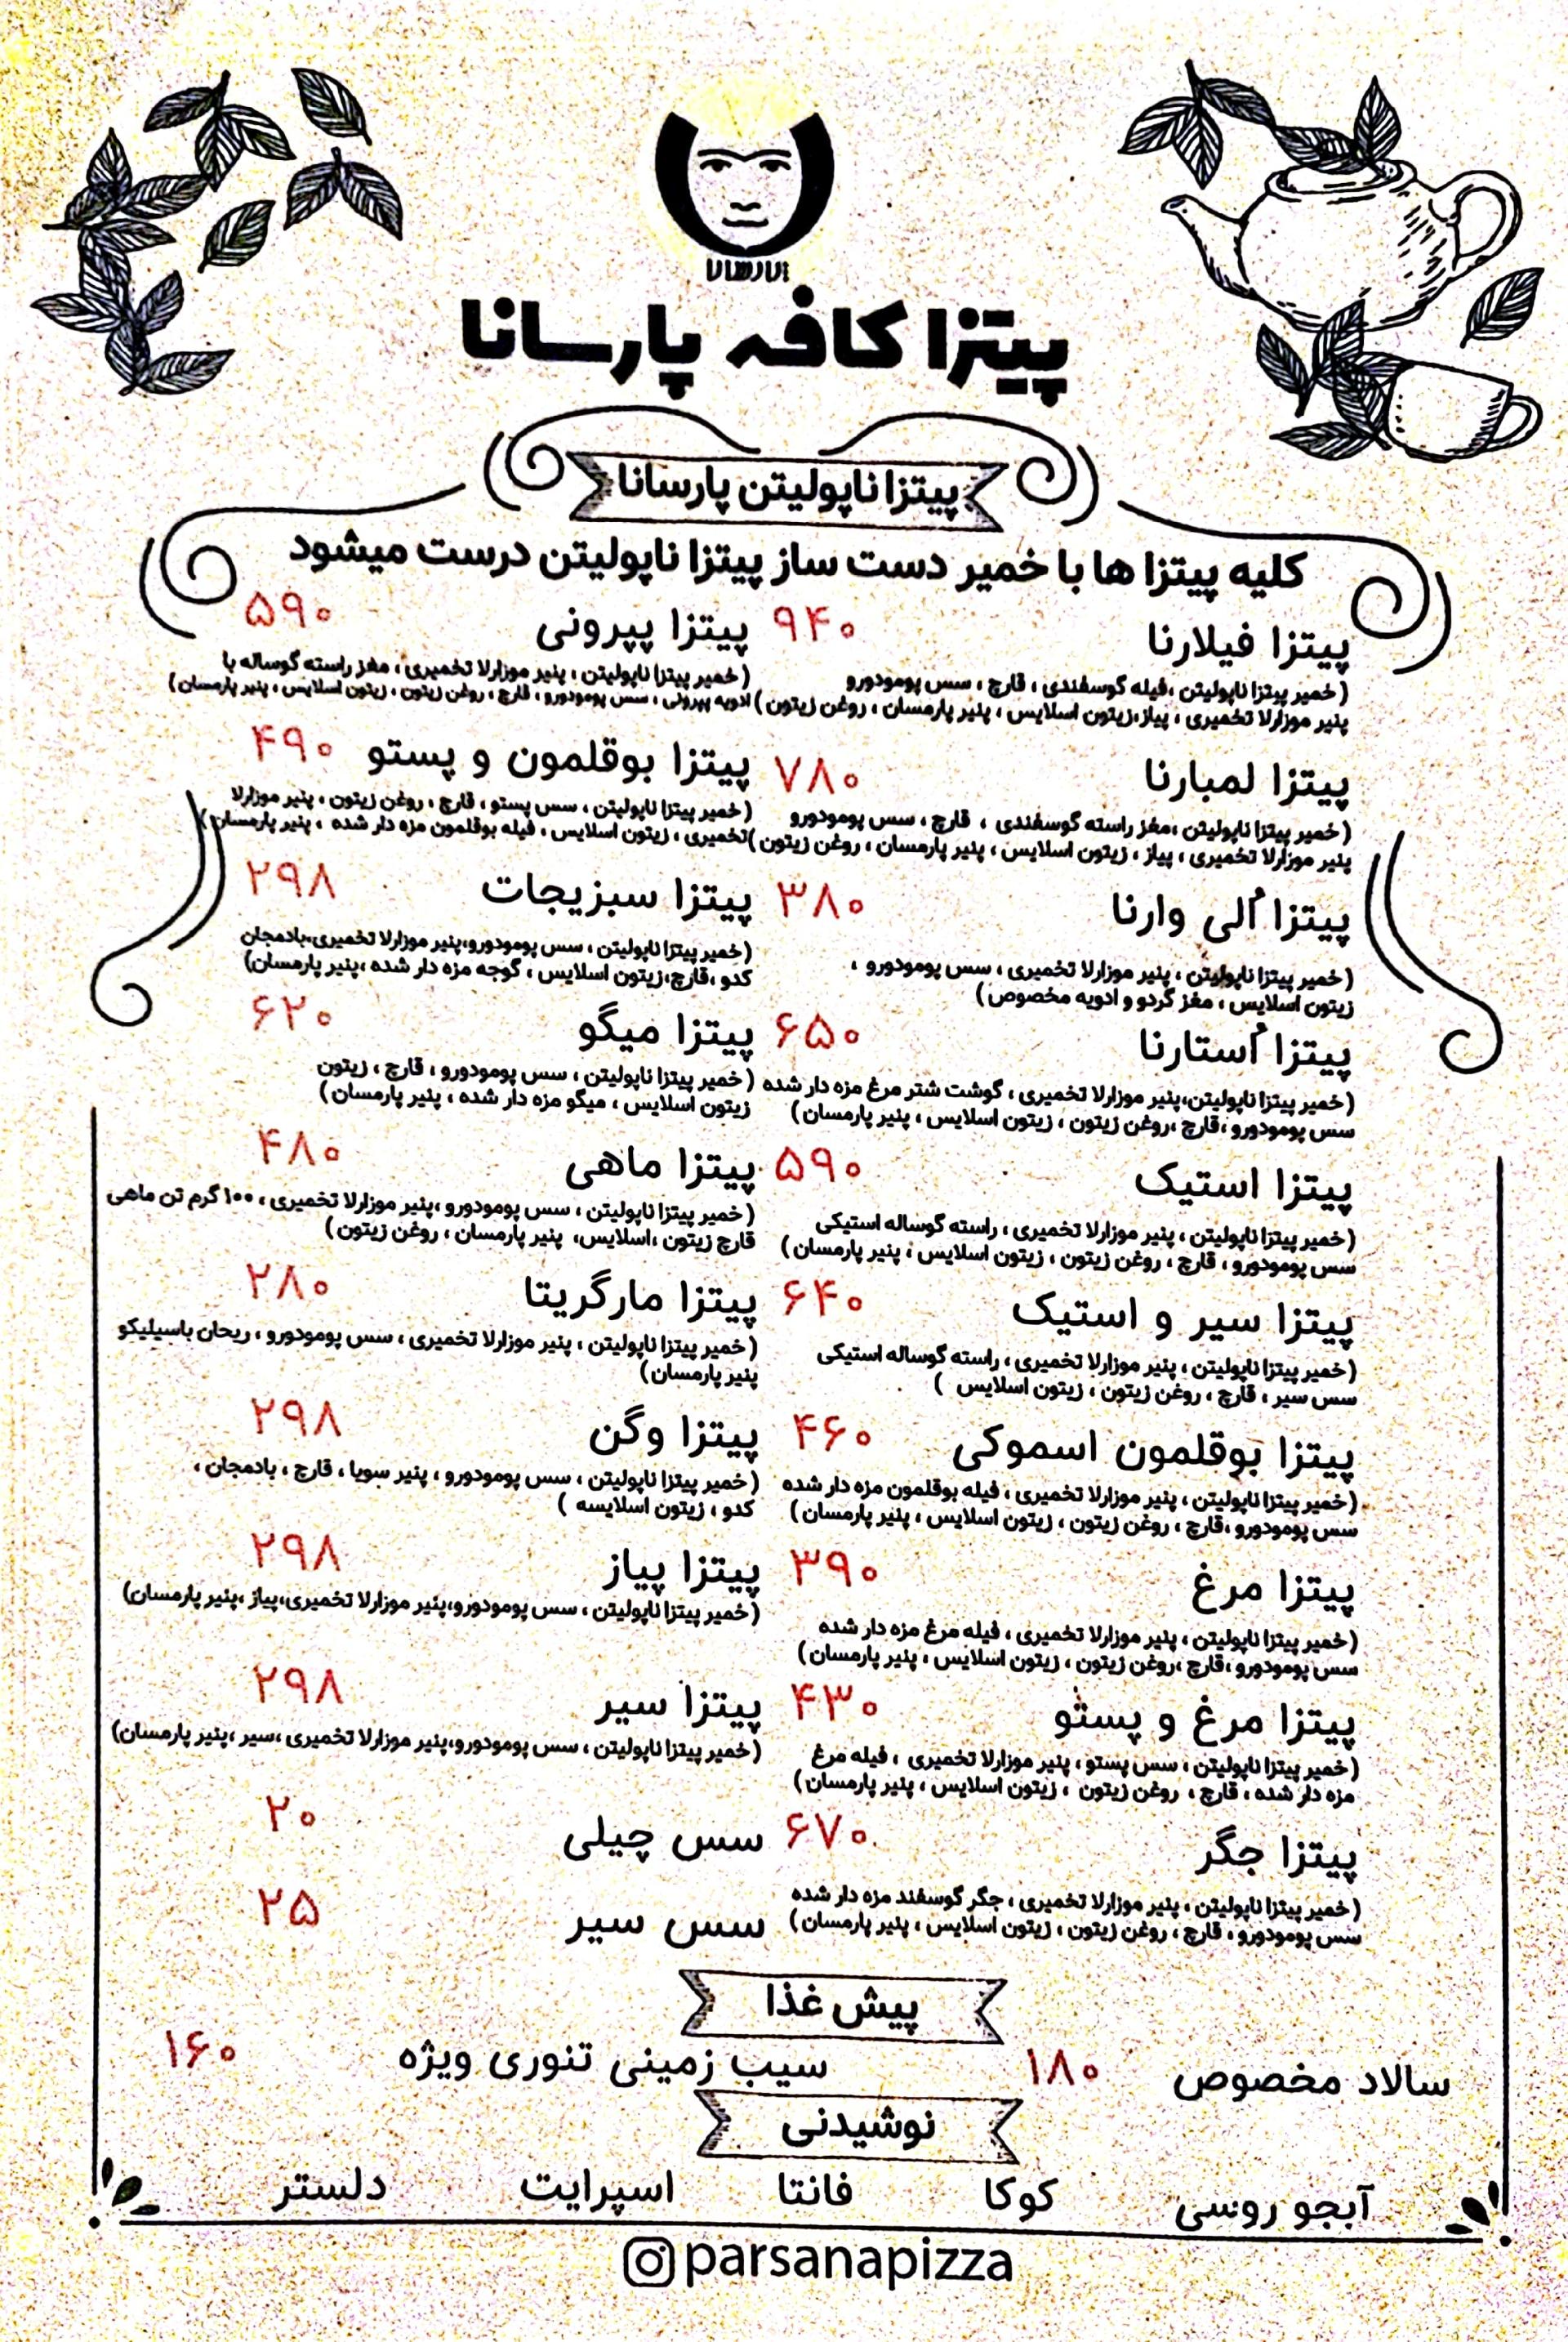 پارسانا
پیتزا کافه پارسانا
پیتزا ناپولیتن پارسانا
کلیه پیتزا ها با خمیر دست ساز پیتزا ناپولیتن درست میشود
پیتزا فیلارنا ۹۴۰
(خمیر پیتزا ناپولیتن ،فیله گوسفندی ، قارچ ، سس پومودورو
پنیر موزارلا تخمیری ، پیاز،زیتون اسلایس ، پنیر پارمسان ، روغن زیتون)
پیتزا لمبارنا ۷۸۰
(خمیر پیتزا ناپولیتن ،مغز راسته گوسفندی ، قارچ ، سس پومودورو
پنیر موزارلا تخمیری ، پیاز ، زیتون اسلایس ، پنیر پارمسان ، روغن زیتون)
پیتزا اُلی وارنا ۳۸۰
(خمیر پیتزا ناپولیتن ، پنیر موزارلا تخمیری ، سس پومودورو ،
زیتون اسلایس ، مغز گردو و ادویه مخصوص)
پیتزا اُستارنا ۶۵۰
(خمیر پیتزا ناپولیتن،پنیر موزارلا تخمیری ، گوشت شتر مرغ مزه دار شده
سس پومودورو ،قارچ ،روغن زیتون ، زیتون اسلایس ، پنیر پارمسان)
پیتزا استیک ۵۹۰
(خمیر پیتزا ناپولیتن ، پنیر موزارلا تخمیری ، راسته گوساله استیکی
سس پومودورو ، قارچ ، روغن زیتون ، زیتون اسلایس ، پنیر پارمسان)
پیتزا سیر و استیک ۶۴۰
(خمیر پیتزا ناپولیتن ، پنیر موزارلا تخمیری ، راسته گوساله استیکی
سس سیر ، قارچ ، روغن زیتون ، زیتون اسلایس )
پیتزا بوقلمون اسموکی ۴۶۰
(خمیر پیتزا ناپولیتن ، پنیر موزارلا تخمیری ، فیله بوقلمون مزه دار شده
سس پومودورو ،قارچ ، روغن زیتون ، زیتون اسلایس ، پنیر پارمسان)
پیتزا مرغ ۳۹۰
(خمیر پیتزا ناپولیتن ، پنیر موزارلا تخمیری ، فیله مرغ مزه دار شده
سس پومودورو ،قارچ ،روغن زیتون ، زیتون اسلایس ، پنیر پارمسان)
پیتزا مرغ و پستو ۴۳۰
(خمیر پیتزا ناپولیتن ، سس پستو ، پنیر موزارلا تخمیری ، فیله مرغ
مزه دار شده ، قارچ ، روغن زیتون ، زیتون اسلایس ، پنیر پارمسان)
پیتزا جگر ۶۷۰
(خمیر پیتزا ناپولیتن ، پنیر موزارلا تخمیری ، جگر گوسفند مزه دار شده
سس پومودورو ، قارچ ، روغن زیتون ، زیتون اسلایس ، پنیر پارمسان)
پیتزا پپرونی ۵۹۰
(خمیر پیتزا ناپولیتن ، پنیر موزارلا تخمیری ، مغز راسته گوساله با
ادویه پپرونی ، سس پومودورو ، قارچ ، روغن زیتون ، زیتون اسلایس ، پنیر پارمسان)
پیتزا بوقلمون و پستو ۴۹۰
(خمیر پیتزا ناپولیتن ، سس پستو ، قارچ ، روغن زیتون ، پنیر موزارلا
تخمیری ، زیتون اسلایس ، فیله بوقلمون مزه دار شده ، پنیر پارمسان)
پیتزا سبزیجات ۲۹۸
(خمیر پیتزا ناپولیتن ، سس پومودورو،پنیر موزارلا تخمیری،بادمجان
کدو ،قارچ،زیتون اسلایس ، گوجه مزه دار شده ،پنیر پارمسان)
پیتزا میگو ۶۲۰
(خمیر پیتزا ناپولیتن ، سس پومودورو ، قارچ ، زیتون
زیتون اسلایس ، میگو مزه دار شده ، پنیر پارمسان)
پیتزا ماهی ۴۸۰
(خمیر پیتزا ناپولیتن ، سس پومودورو ،پنیر موزارلا تخمیری ، ۱۰۰ گرم تن ماهی
قارچ زیتون ،اسلایس، پنیر پارمسان ، روغن زیتون)
پیتزا مارگریتا ۲۸۰
(خمیر پیتزا ناپولیتن ، پنیر موزارلا تخمیری ، سس پومودورو ، ریحان باسیلیکو
پنیر پارمسان)
پیتزا وگن ۲۹۸
(خمیر پیتزا ناپولیتن ، سس پومودورو ، پنیر سویا ، قارچ ، بادمجان ،
کدو ، زیتون اسلایسه )
پیتزا پیاز ۲۹۸
(خمیر پیتزا ناپولیتن ، سس پومودورو،پنیر موزارلا تخمیری،پیاز ،پنیر پارمسان)
پیتزا سیر ۲۹۸
(خمیر پیتزا ناپولیتن ، سس پومودورو،پنیر موزارلا تخمیری ،سیر ،پنیر پارمسان)
سس چیلی ۲۰
سس سیر ۲۵
پیش غذا
سالاد مخصوص ۱۸۰ سیب زمینی تنوری ویژه ۱۶۰
نوشیدنی
آبجو روسی کوکا فانتا اسپرایت دلستر
parsanapizza